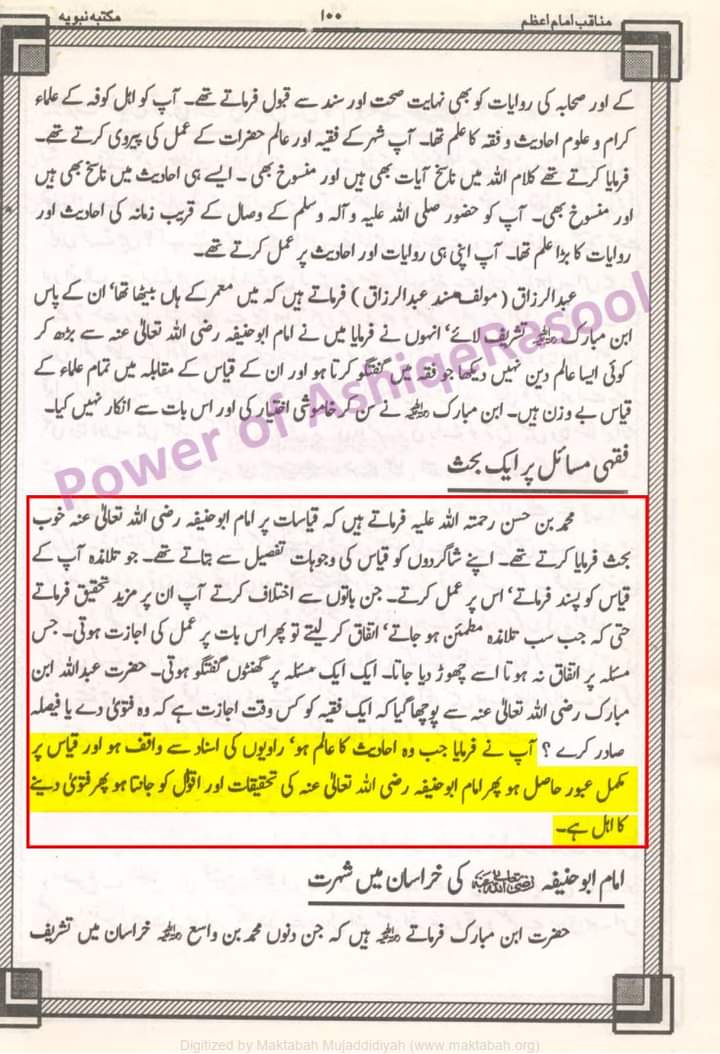 مکتبہ نبویہ
۱۰۰
مناقب امام اعظم
کے اور صحابہ کی روایات کو بھی نہایت صحت اور سند سے قبول فرماتے تھے۔ آپ کو اہل کوفہ کے علماء
کرام و علوم احادیث و فقہ کا علم تھا۔ آپ شہر کے فقیہ اور عالم حضرات کے عمل کی پیروی کرتے تھے۔
فرمایا کرتے تھے کلام اللہ میں ناسخ آیات بھی ہیں اور منسوخ بھی ۔ ایسے ہی احادیث میں ناسخ بھی ہیں
اور منسوخ بھی۔ آپ کو حضور صلی اللہ علیہ و آلہ وسلم کے وصال کے قریب زمانہ کی احادیث اور
روایات کا بڑا علم تھا۔ آپ اپنی ہی روایات اور احادیث پر عمل کرتے تھے۔
عبدالرزاق ( مولف مسند عبدالرزاق ) فرماتے ہیں کہ میں معمر کے ہاں بیٹھا تھا' ان کے پاس
ابن مبارک رحمۃ اللہ علیہ تشریف لائے' انہوں نے فرمایا میں نے امام ابوحنیفہ رضی اللہ تعالیٰ عنہ سے بڑھ کر
کوئی ایسا عالم دین نہیں دیکھا جو فقہ میں گفتگو کرتا ہو اور ان کے قیاس کے مقابلہ میں تمام علماء کے
قیاس بے وزن ہیں۔ ابن مبارک رحمۃ اللہ علیہ نے سن کر خاموشی اختیار کی اور اس بات سے انکار نہیں کیا۔
Power of AshiqeRasool
فقہی مسائل پر ایک بحث
محمد بن حسن رحمتہ اللہ علیہ فرماتے ہیں کہ قیاسات پر امام ابوحنیفہ رضی اللہ تعالیٰ عنہ خوب
بحث فرمایا کرتے تھے۔ اپنے شاگردوں کو قیاس کی وجوہات تفصیل سے بتاتے تھے۔ جو تلامذہ آپ کے
قیاس کو پسند فرماتے' اس پر عمل کرتے۔ جن باتوں سے اختلاف کرتے آپ ان پر مزید تحقیق فرماتے
حتی کہ جب سب تلامذہ مطمئن ہو جاتے' اتفاق کر لیتے تو پھر اس بات پر عمل کی اجازت ہوتی۔ جس
مسئلہ پر اتفاق نہ ہوتا اسے چھوڑ دیا جاتا۔ ایک ایک مسئلہ پر گھنٹوں گفتگو ہوتی۔ حضرت عبداللہ ابن
مبارک رضی اللہ تعالیٰ عنہ سے پوچھا گیا کہ ایک فقیہ کو کس وقت اجازت ہے کہ وہ فتویٰ دے یا فیصلہ
صادر کرے ؟ آپ نے فرمایا جب وہ احادیث کا عالم ہو' راویوں کی اسناد سے واقف ہو اور قیاس پر
مکمل عبور حاصل ہو پھر امام ابوحنیفہ رضی اللہ تعالیٰ عنہ کی تحقیقات اور اقوال کو جانتا ہو پھر فتویٰ دینے
کا اہل ہے۔
امام ابو حنیفہ رضی اللہ عنہ کی خراسان میں شہرت
حضرت ابن مبارک فرماتے رحمۃ اللہ علیہ ہیں کہ جن دنوں محمد بن واسع رحمۃ اللہ علیہ خراسان میں تشریف
Digitized by Maktabah Mujaddidiyah (www.maktabah.org)